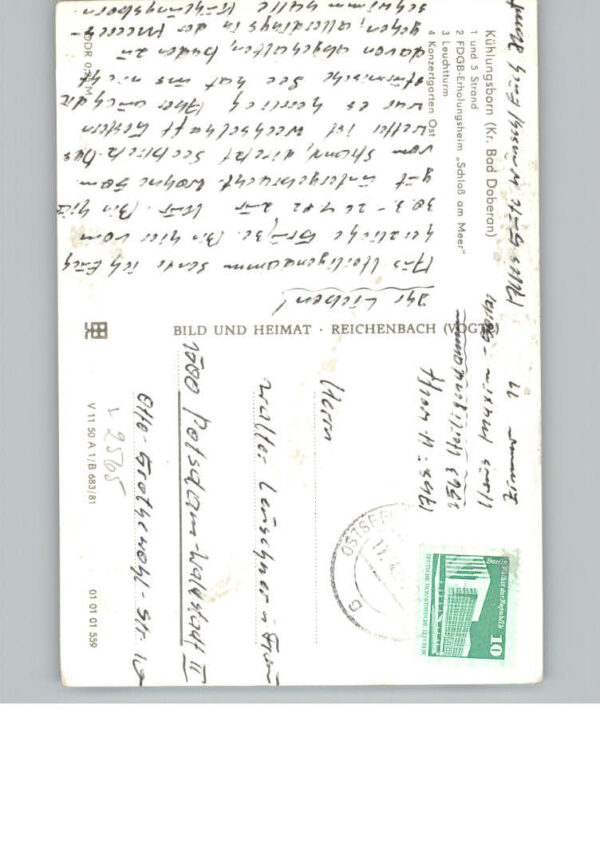 Kühlungsborn (Kr. Bad Doberan)
1 und 5 Strand
2 FDGB-Erholungsheim „Schloß am Meer"
3 Leuchtturm
4 Konzertgarten Ost
Ihr Lieben!
Aus Heiligendamm sende ich Euch
herzliche Grüße. Bin hier vom
30.3 – 26.4.82 zur Kur. Bin hier
gut untergebracht. Wohne 50 m
vom Strand, direkt Seeblick. Das
Wetter ist wechselhaft. Gestern
war es herrlich. Aber auch die
stürmische See hat uns nicht
davon abgehalten, baden zu
gehen, allerdings in der Meeres-
schwimmhalle Kühlungsborn.
BILD UND HEIMAT · REICHENBACH (VOGTL)
V 11 50 A 1/B 683/81
01 01 01 559
DDR
OSTSEE
Berlin Palast der Republik
DEUTSCHE DEMOKRATISCHE REPUBLIK
10
Zimmer
2563 Heiligendamm
Herrn
Walter Leuschner u. Frau
1500 Potsdam-Waldstadt II
Otto-Grotewohl-Str. 10